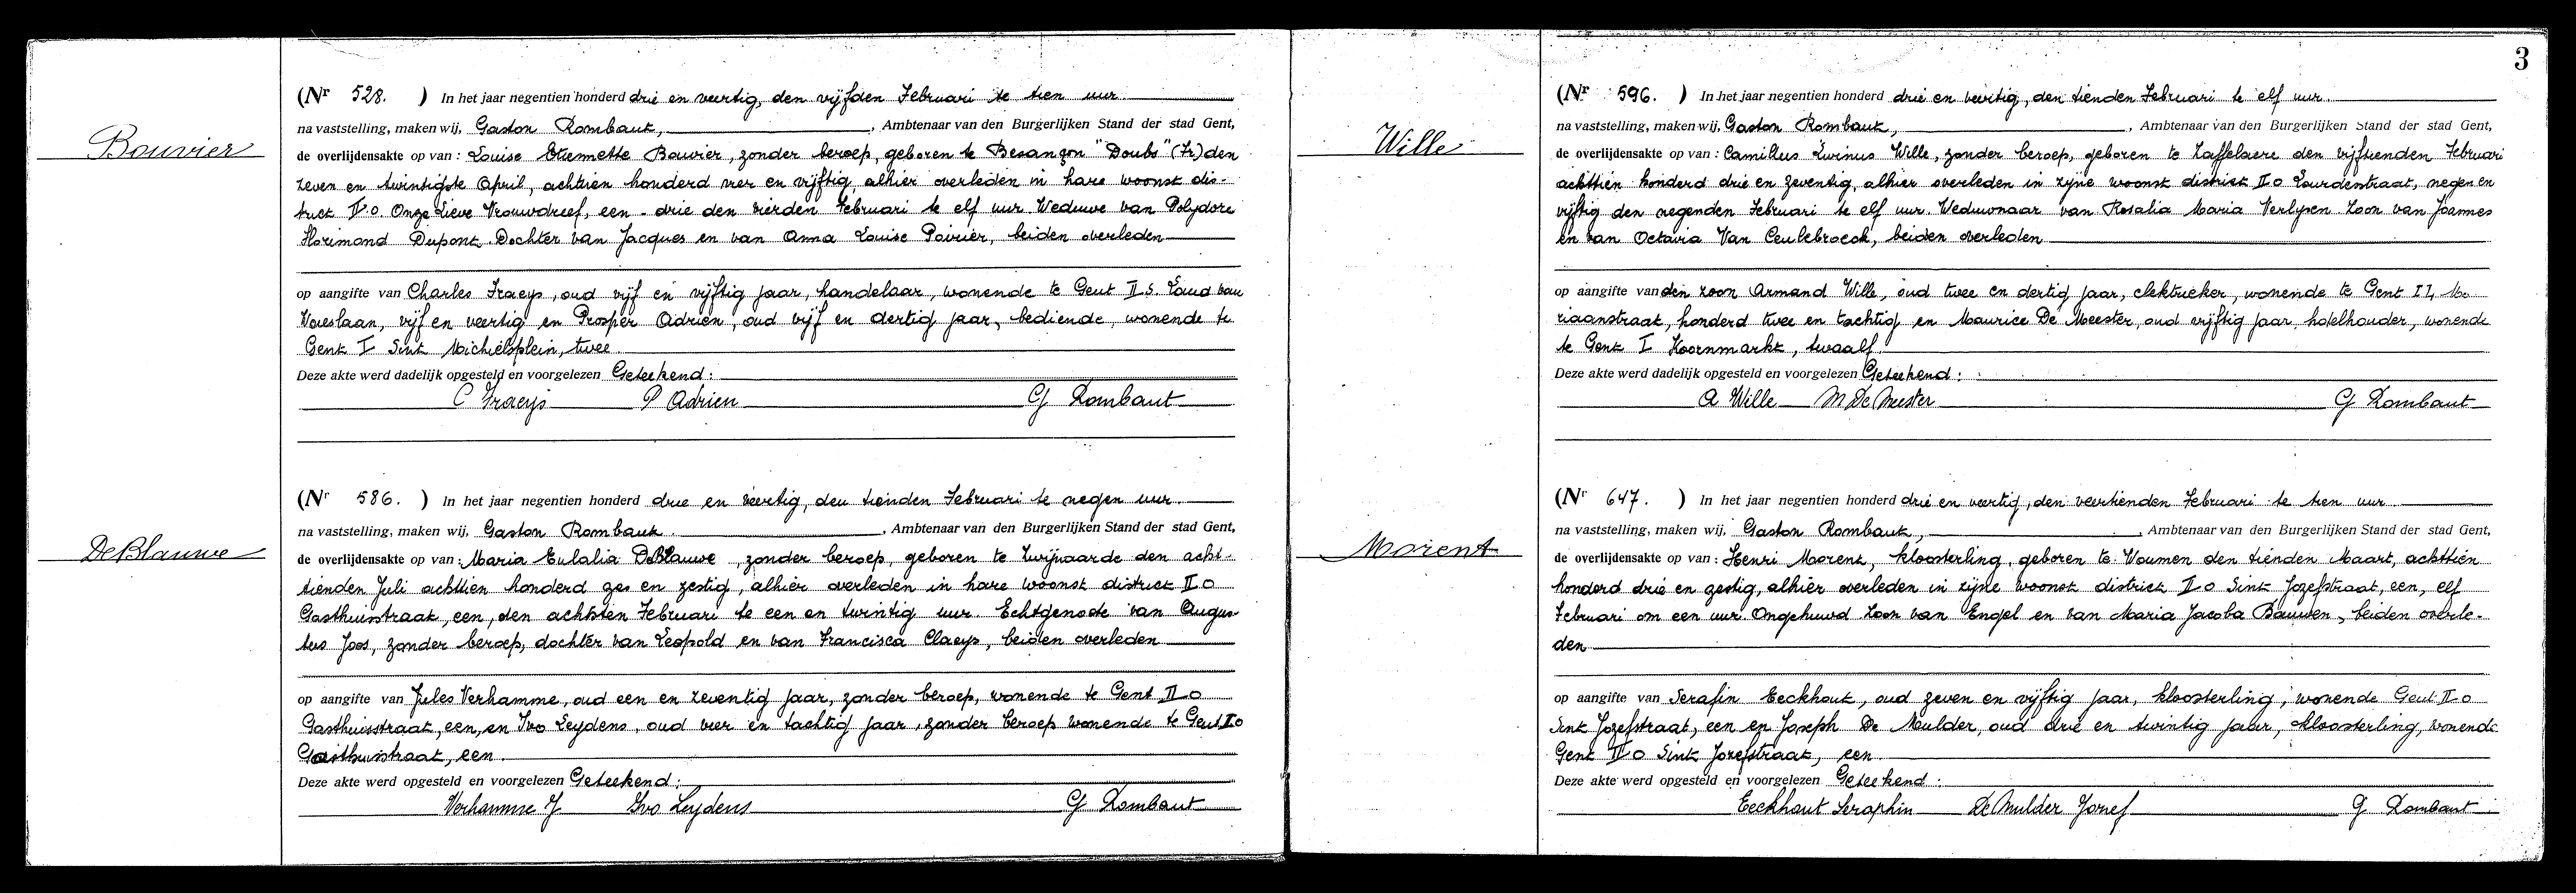 Bouvier
(Nr 528. ) In het jaar negentien honderd drie en veertig, den vijfden Februari te tien uur
na vaststelling, maken wij, Gaston Rombaut, , Ambtenaar van den Burgerlijken Stand der stad Gent,
de overlijdensakte op van : Louise Etiennette Bouvier, zonder beroep, geboren te Besançon "Doubs" (Fr) den
zeven en twintigste April, achttien honderd vier en vijftig, alhier overleden in hare woonst dis-
trict II o. Onze Lieve Vrouwdreef, een - drie den vierden Februari te elf uur. Weduwe van Polydore
Florimond Dupont. Dochter van Jacques en van Anna Louise Poirier, beiden overleden
op aangifte van Charles Fraeys, oud vijf en vijftig jaar, handelaar, wonende te Gent II.S. Land van
Waeslaan, vijf en veertig en Prosper Adrien, oud vijf en dertig jaar, bediende, wonende te
Gent I Sint Michielsplein, twee
Deze akte werd dadelijk opgesteld en voorgelezen Geteekend :
C Fraeys P Adrien G Rombaut
De Blauwe
(Nr 586. ) In het jaar negentien honderd drie en veertig, den tienden Februari te negen uur
na vaststelling, maken wij, Gaston Rombaut. , Ambtenaar van den Burgerlijken Stand der stad Gent,
de overlijdensakte op van : Maria Eulalia De Blauwe, zonder beroep, geboren te Zwijnaarde den acht-
tienden Juli achttien honderd zes en zestig, alhier overleden in hare woonst district II o
Gasthuisstraat, een, den achtsten Februari te een en twintig uur. Echtgenoote van Augus-
tus Joos, zonder beroep, dochter van Leopold en van Francisca Claeys, beiden overleden
op aangifte van Jules Verhamme, oud een en zeventig jaar, zonder beroep, wonende te Gent II o
Gasthuisstraat, een, en Ivo Leydens, oud vier en tachtig jaar, zonder beroep wonende te Gent II o
Gasthuisstraat, een.
Deze akte werd opgesteld en voorgelezen Geteekend :
Verhamme J Ivo Leydens G Rombaut
3
Wille
(Nr 596. ) In het jaar negentien honderd drie en veertig, den tienden Februari te elf uur.
na vaststelling, maken wij, Gaston Rombaut, , Ambtenaar van den Burgerlijken Stand der stad Gent,
de overlijdensakte op van : Camillus Livinus Wille, zonder beroep, geboren te Zaffelaere den vijftienden Februari
achttien honderd drie en zeventig, alhier overleden in zijne woonst district II o Lourdestraat, negen en
vijftig den negenden Februari te elf uur. Weduwnaar van Rosalia Maria Verlysen Zoon van Joannes
en van Octavia Van Ceulebroeck, beiden overleden
op aangifte van den zoon Armand Wille, oud twee en dertig jaar, elektrieker, wonende te Gent II, Ma-
riaanstraat, honderd twee en tachtig en Maurice De Meester, oud vijftig jaar hotelhouder, wonende
te Gent I Koornmarkt, twaalf.
Deze akte werd dadelijk opgesteld en voorgelezen Geteekend :
A Wille M De Meester G Rombaut
Morent
(Nr 647. ) In het jaar negentien honderd drie en veertig, den veertienden Februari te tien uur
na vaststelling, maken wij, Gaston Rombaut, , Ambtenaar van den Burgerlijken Stand der stad Gent,
de overlijdensakte op van : Henri Morent, kloosterling, geboren te Woumen den tienden Maart, achttien
honderd drie en zestig, alhier overleden in zijne woonst district II o Sint Jozefstraat, een, elf
Februari om een uur. Ongehuwd Zoon van Engel en van Maria Jacoba Bauwen, beiden overle-
den
op aangifte van Serafin Eeckhout, oud zeven en vijftig jaar, kloosterling, wonende Gent II o
Sint Jozefstraat, een en Joseph De Mulder, oud drie en twintig jaar, kloosterling, wonende
Gent II o Sint Jozefstraat, een
Deze akte werd opgesteld en voorgelezen Geteekend :
Eeckhout Seraphin De Mulder Jozef G Rombaut